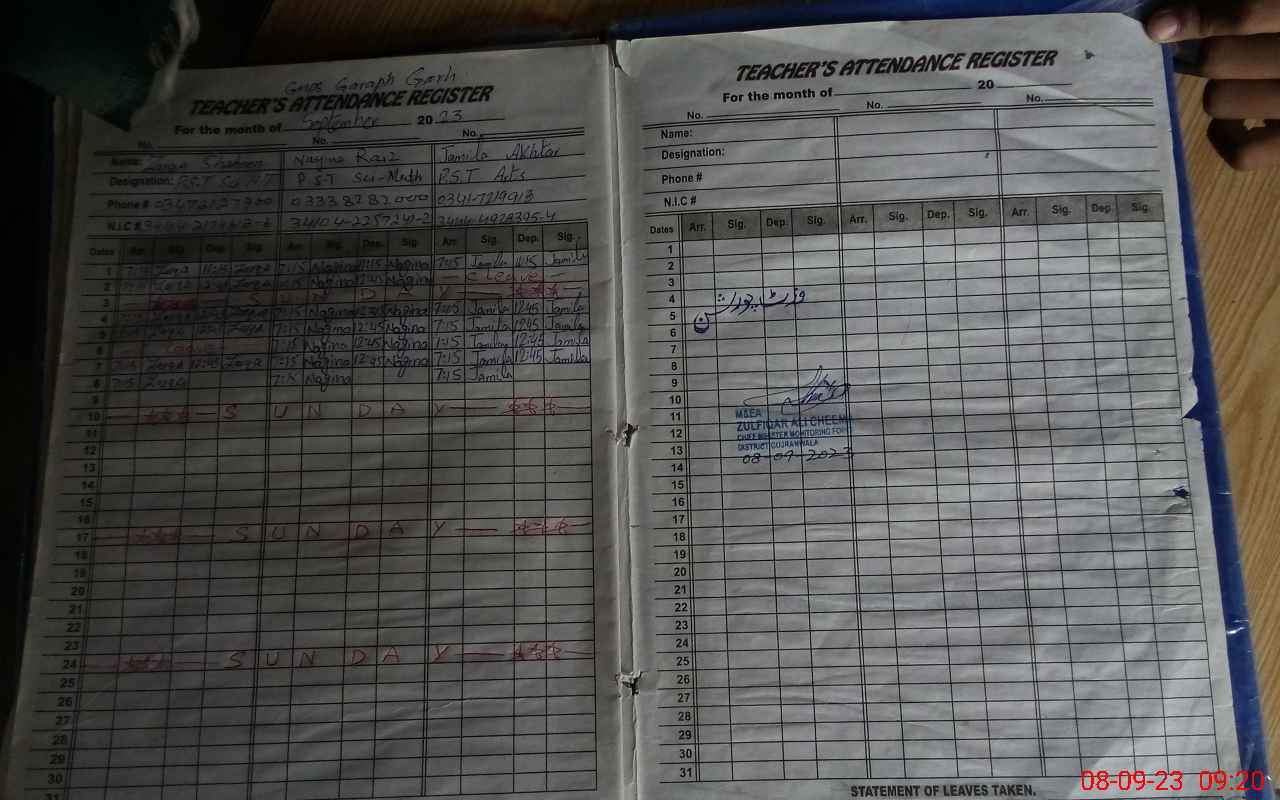 GMPS Garaph Garh
TEACHER'S ATTENDANCE REGISTER
For the month of September 2023
No. No. No.
Name: Shaheen Nagina Raiz Jamila Akhtar
Designation: P.S.T P.S.T Sci-Math P.S.T Arts
Phone # 0333 8282000 0341-7219913
N.I.C #
Dates Arr. Sig. Dep. Sig. Arr. Sig. Dep. Sig. Arr. Sig. Dep. Sig.
1 7:15 11:15 7:15 Nagina 11:15 Nagina 7:15 Jamila 11:15 Jamila
2 Nagina 12:45 Nagina C Leave
3 S U N D A Y
4 7:15 Nagina 12:45 Nagina 7:15 Jamila 12:45 Jamila
5 7:15 Nagina 12:45 Nagina 7:15 Jamila 12:45 Jamila
6 Leave 7:15 Nagina 12:45 Nagina Jamila 12:45 Jamila
7 7:15 12:45 7:15 Nagina 12:45 Nagina 7:15 Jamila 12:45 Jamila
8 7:15 7:15 Nagina 7:15 Jamila
9
10 S U N D A Y
11
12
13
14
15
16
17 S U N D A Y
18
19
20
21
22
23
24 S U N D A Y
25
26
27
28
29
30
31
TEACHER'S ATTENDANCE REGISTER
For the month of 20
No. No. No.
Name:
Designation:
Phone #
N.I.C #
Dates Arr. Sig. Dep. Sig. Arr. Sig. Dep. Sig. Arr. Sig. Dep. Sig.
1
2
3
4 وزٹ پورشن
5
6
7
8
9
10
11 M&EA
ZULFIQAR ALI CHEEMA
12 CHIEF MINISTER MONITORING FOR
DISTRICT GUJRANWALA
13 08-09-2023
14
15
16
17
18
19
20
21
22
23
24
25
26
27
28
29
30
31
STATEMENT OF LEAVES TAKEN.
08-09-23 09:20